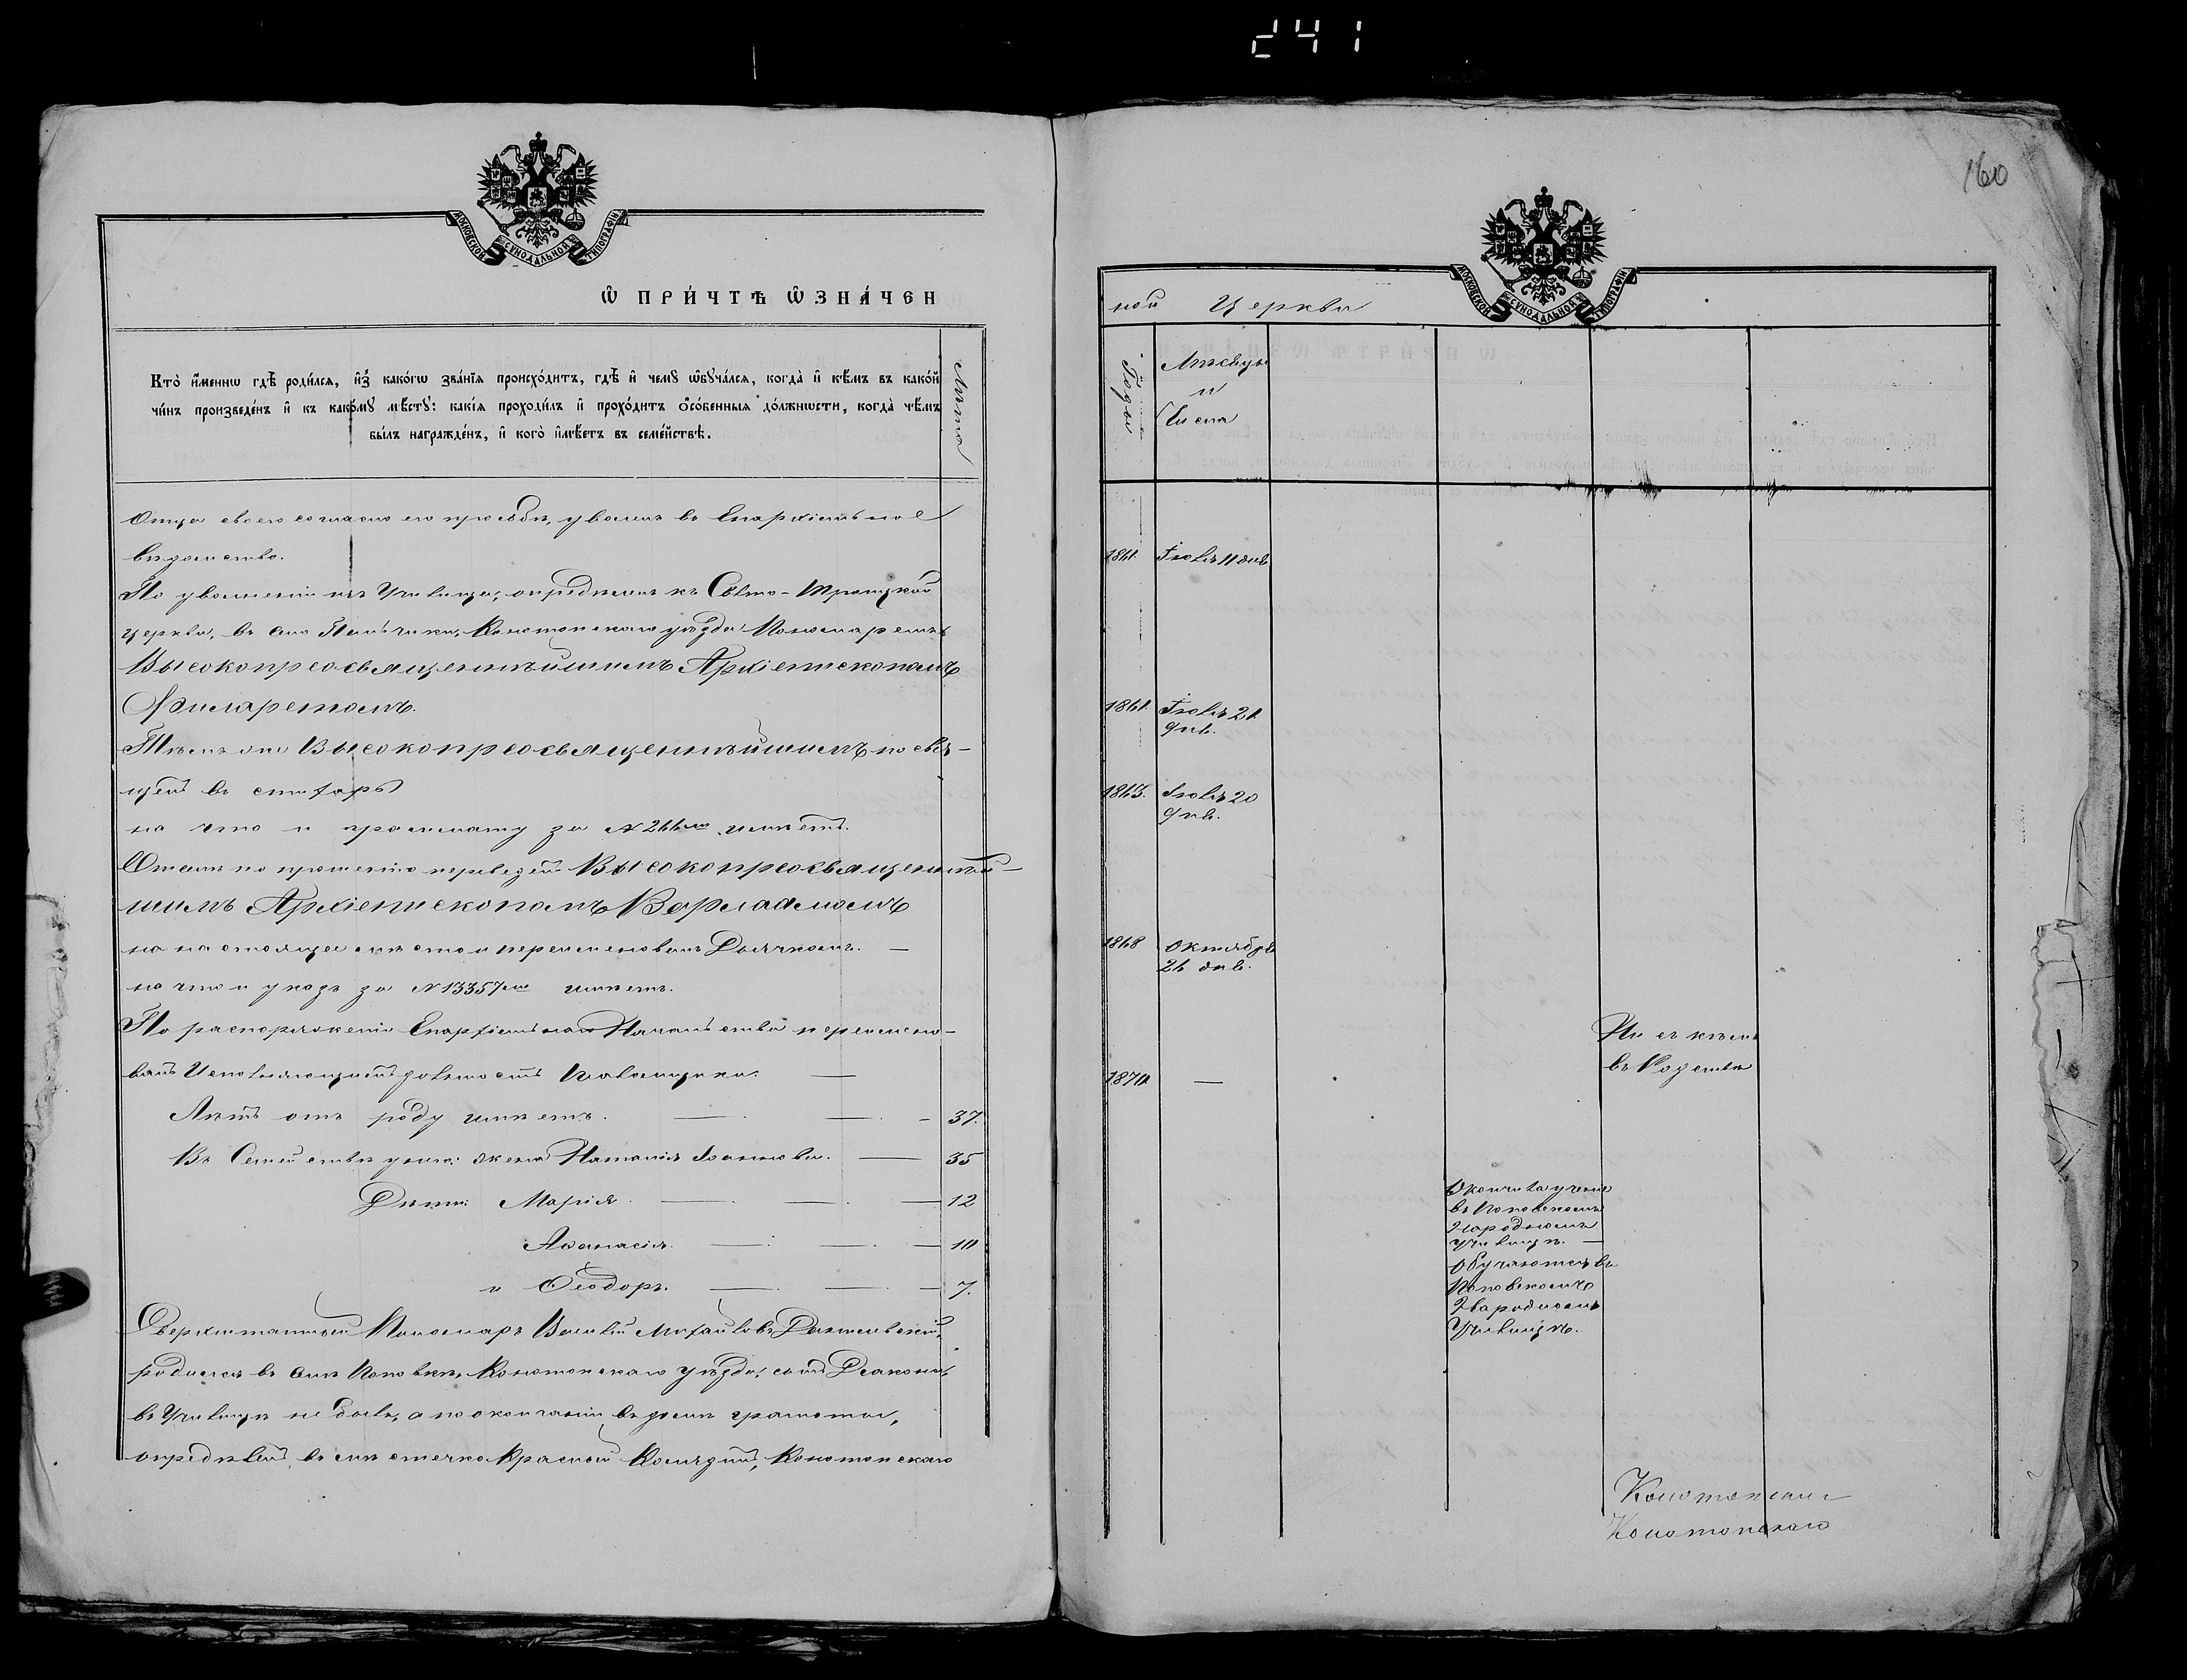 241
МОСКОВСКОЙ СѴНОДАЛЬНОЙ ТИПОГРАФІИ
Ѡ ПРИ́ЧТѢ ѠЗНА́ЧЕН
Кто̀ и҆́меннѡ гдѣ̀ роди́лсѧ, и҆з̾ како́гѡ зва́нїѧ происхо́дитъ, гдѣ̀ и҆ чемꙋ̀ ѡ҆бꙋча́лсѧ, когда̀ и҆ кѣ́мъ въ како́й
чи́нъ произведе́нъ и҆ къ како́мꙋ мѣ́стꙋ: каки́ѧ проходи́лъ и҆ прохо́дитъ ѻ҆со́бенныѧ до́лжнѡсти, когда̀ чѣ́мъ
бы́лъ награжде́нъ, и҆ кого̀ и҆мѣ́етъ въ семе́йствѣ.
Лѣта
Отца своего согласно его прозьбѣ, уволенъ въ Епархіальное
вѣдомство.
По увольненіи изъ Училища, опредѣленъ къ Свято-Троицкой
церкви, въ село Конотопскаго уѣзда Пономаремъ
Высокопреосвященнѣйшимъ Архіепископомъ
Филаретомъ.
Тѣмъ же Высокопреосвященнѣйшимъ посвя-
щенъ въ стихарь
на что и грammату за № имѣетъ.
Отсель по прошенію переведенъ Высокопреосвященнѣй-
шимъ Архіепископомъ Варлаамомъ
на настоящее мѣсто и переименованъ Дьячкомъ. —
на что и указъ за № 13357мъ имѣетъ.
По распоряженію Епархіальнаго Начальства переимено-
ванъ Исполняющимъ должность Псаломщика. —
Лѣтъ отъ роду имѣетъ. — — 37.
Въ Семействѣ у него: жена Наталія Іоаннова. — 35
Дѣти: Марія. — — — 12
Аѳанасія. — — — 10
и Ѳеодоръ. — — — 7.
Сверхштатный Пономарь Василій Михайловъ
родился въ селѣ Поповкѣ, Конотопскаго уѣзда, сынъ Діакона,
въ Училищѣ не былъ, а по окончаніи въ домѣ грамоты,
опредѣленъ въ мѣстечко Красный Колядинъ, Конотопскаго
160
МОСКОВСКОЙ СѴНОДАЛЬНОЙ ТИПОГРАФІИ
ной Церкви
Годы
Мѣсяцы
и
Числа
1861. Іюля 11 дня
1861. Іюля 21
дня.
1863. Іюля 20
дня.
1868 Октября
26 дня.
Ни съ кѣмъ
въ Родствѣ
1870 —
Окончила ученіе
въ Поповскомъ
Народномъ
училищѣ. —
Обучаются въ
Поповскомъ
Народномъ
Училищѣ.
Конотопскаго
Конотопскаго